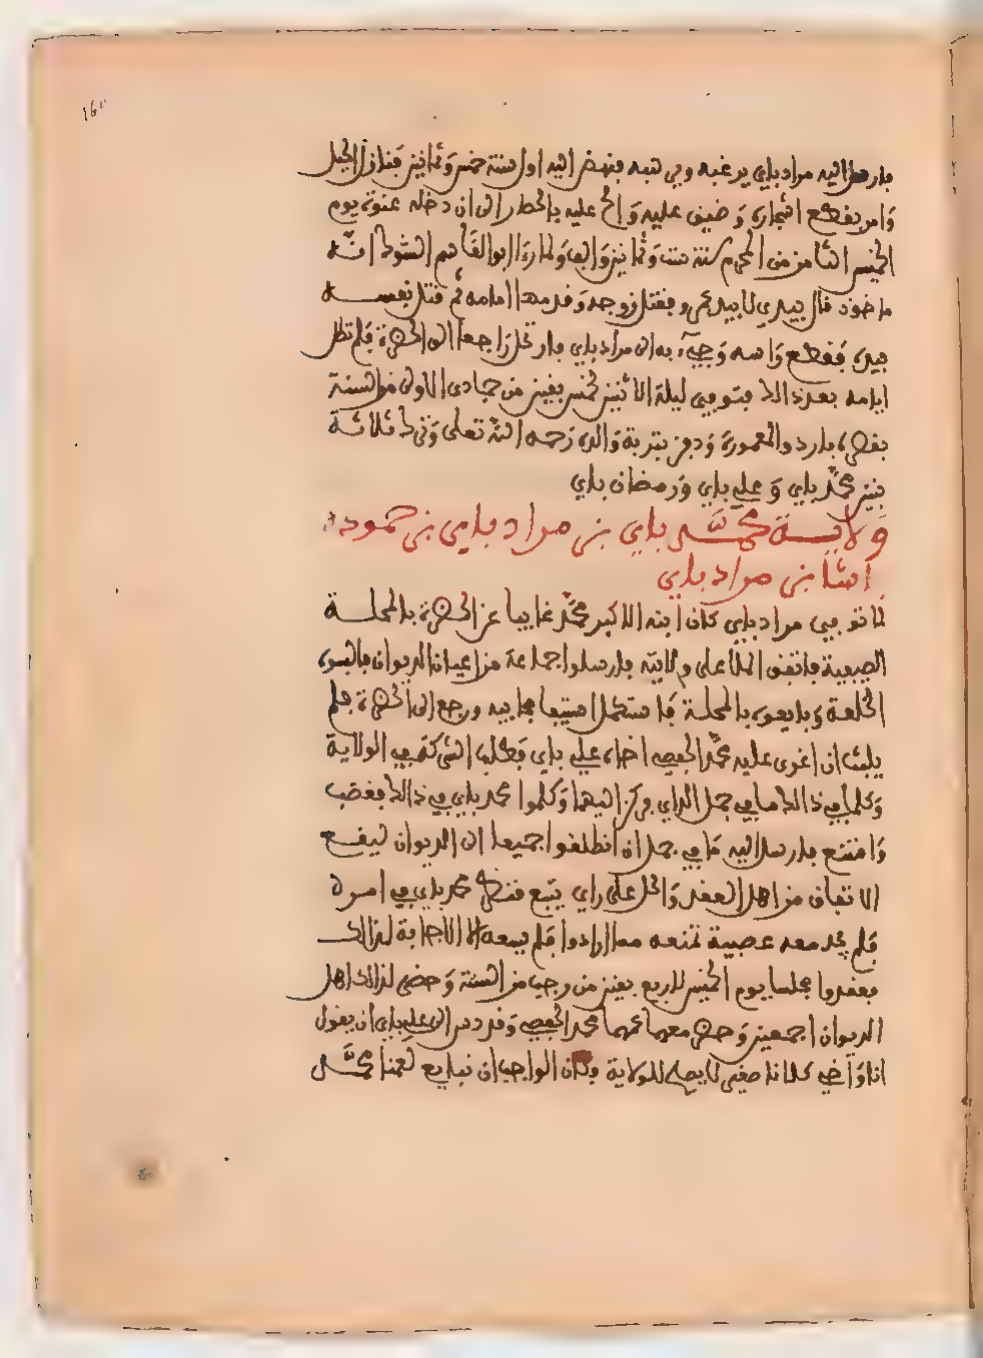 160
فارسل اليه مراد باي يرغبه وهي تنبه فنهض اليه اول سنة خمس وثمانين فنازل الجبل
وامر بقطع اشجاره وضيق عليه والح عليه بالحصار الى ان دخله عنوة يوم
الخميس الثامن من المحرم سنة ست وثمانين والف ولما رءا ابو القاسم الشوك انه
ماخوذ قال بيدي لا بيد عمرو فقتل زوجه وقدمها امامه ثم قتل نفسه
بيده فقطع راسه وجيء به الى مراد باي فارتحل راجعا الى الحضرة فلم تطل
ايامه بعد ذالك فتوفي ليلة الاثنين لخمس بقين من جمادى الاولى من السنة
بقصره بباردو المعمورة ودفن بتربة والده رحمه الله تعلى وترك ثلاثة
بنين محمد باي وعلي باي ورمضان باي
ولاية محمد باي بن مراد باي بن حمودة
باشا بن مراد باي
لما توفي مراد باي كان ابنه الاكبر محمد غايبا عن الحضرة بالمحلة
الصيفية فاتفق الملا على ولايته فارسلوا جماعة من اعيان الديوان فالبسوه
الخلعة وبايعوه بالمحلة فاستكمل استيفا مجابيه ورجع الى الحضرة فلم
يلبث ان اغرى عليه محمد الحفصي اخاه علي باي فطلب الشركة في الولاية
وكلما في ذالك مامي جمل الداي فركن اليهما وكلموا محمد باي في ذالك فغضب
وامتنع فارسل اليه مامي جمل ان انطلقوا جميعا الى الديوان ليقع
الاتفاق من اهل العقد والحل على راي يتبع فنظر محمد باي في امره
فلم يجد معه عصبية تمنعه مما ارادوا فلم يسعه الا الاجابة لذالك
فعقدوا مجلسا يوم الخميس لاربع بقين من رجب من السنة وحضر لذالك اهل
الديوان اجمعين وحضر معهما عمهما محمد الحفصي وقد دس الى علي باي ان يقول
انا واخي كلانا صغير لا يصلح للولاية وكان الواجب ان نبايع لعمنا محمد